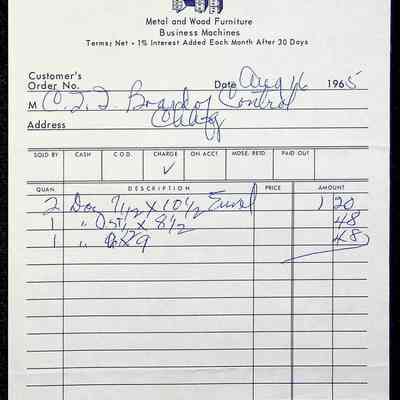 Metal and Wood Furniture
Business Machines
Terms: Net • 1% Interest Added Each Month After 30 Days
Customer's
Order No.
Date Aug 16 1965
M C. I. I. Board of Control
Address
SOLD BY CASH C.O.D. CHARGE ON ACCT. MDSE. RETD PAID OUT
✓
QUAN. DESCRIPTION PRICE AMOUNT
2 Doz 7 1/2 X 10 1/2 1 20
1 " X 8 1/2 48
1 " X 9 48